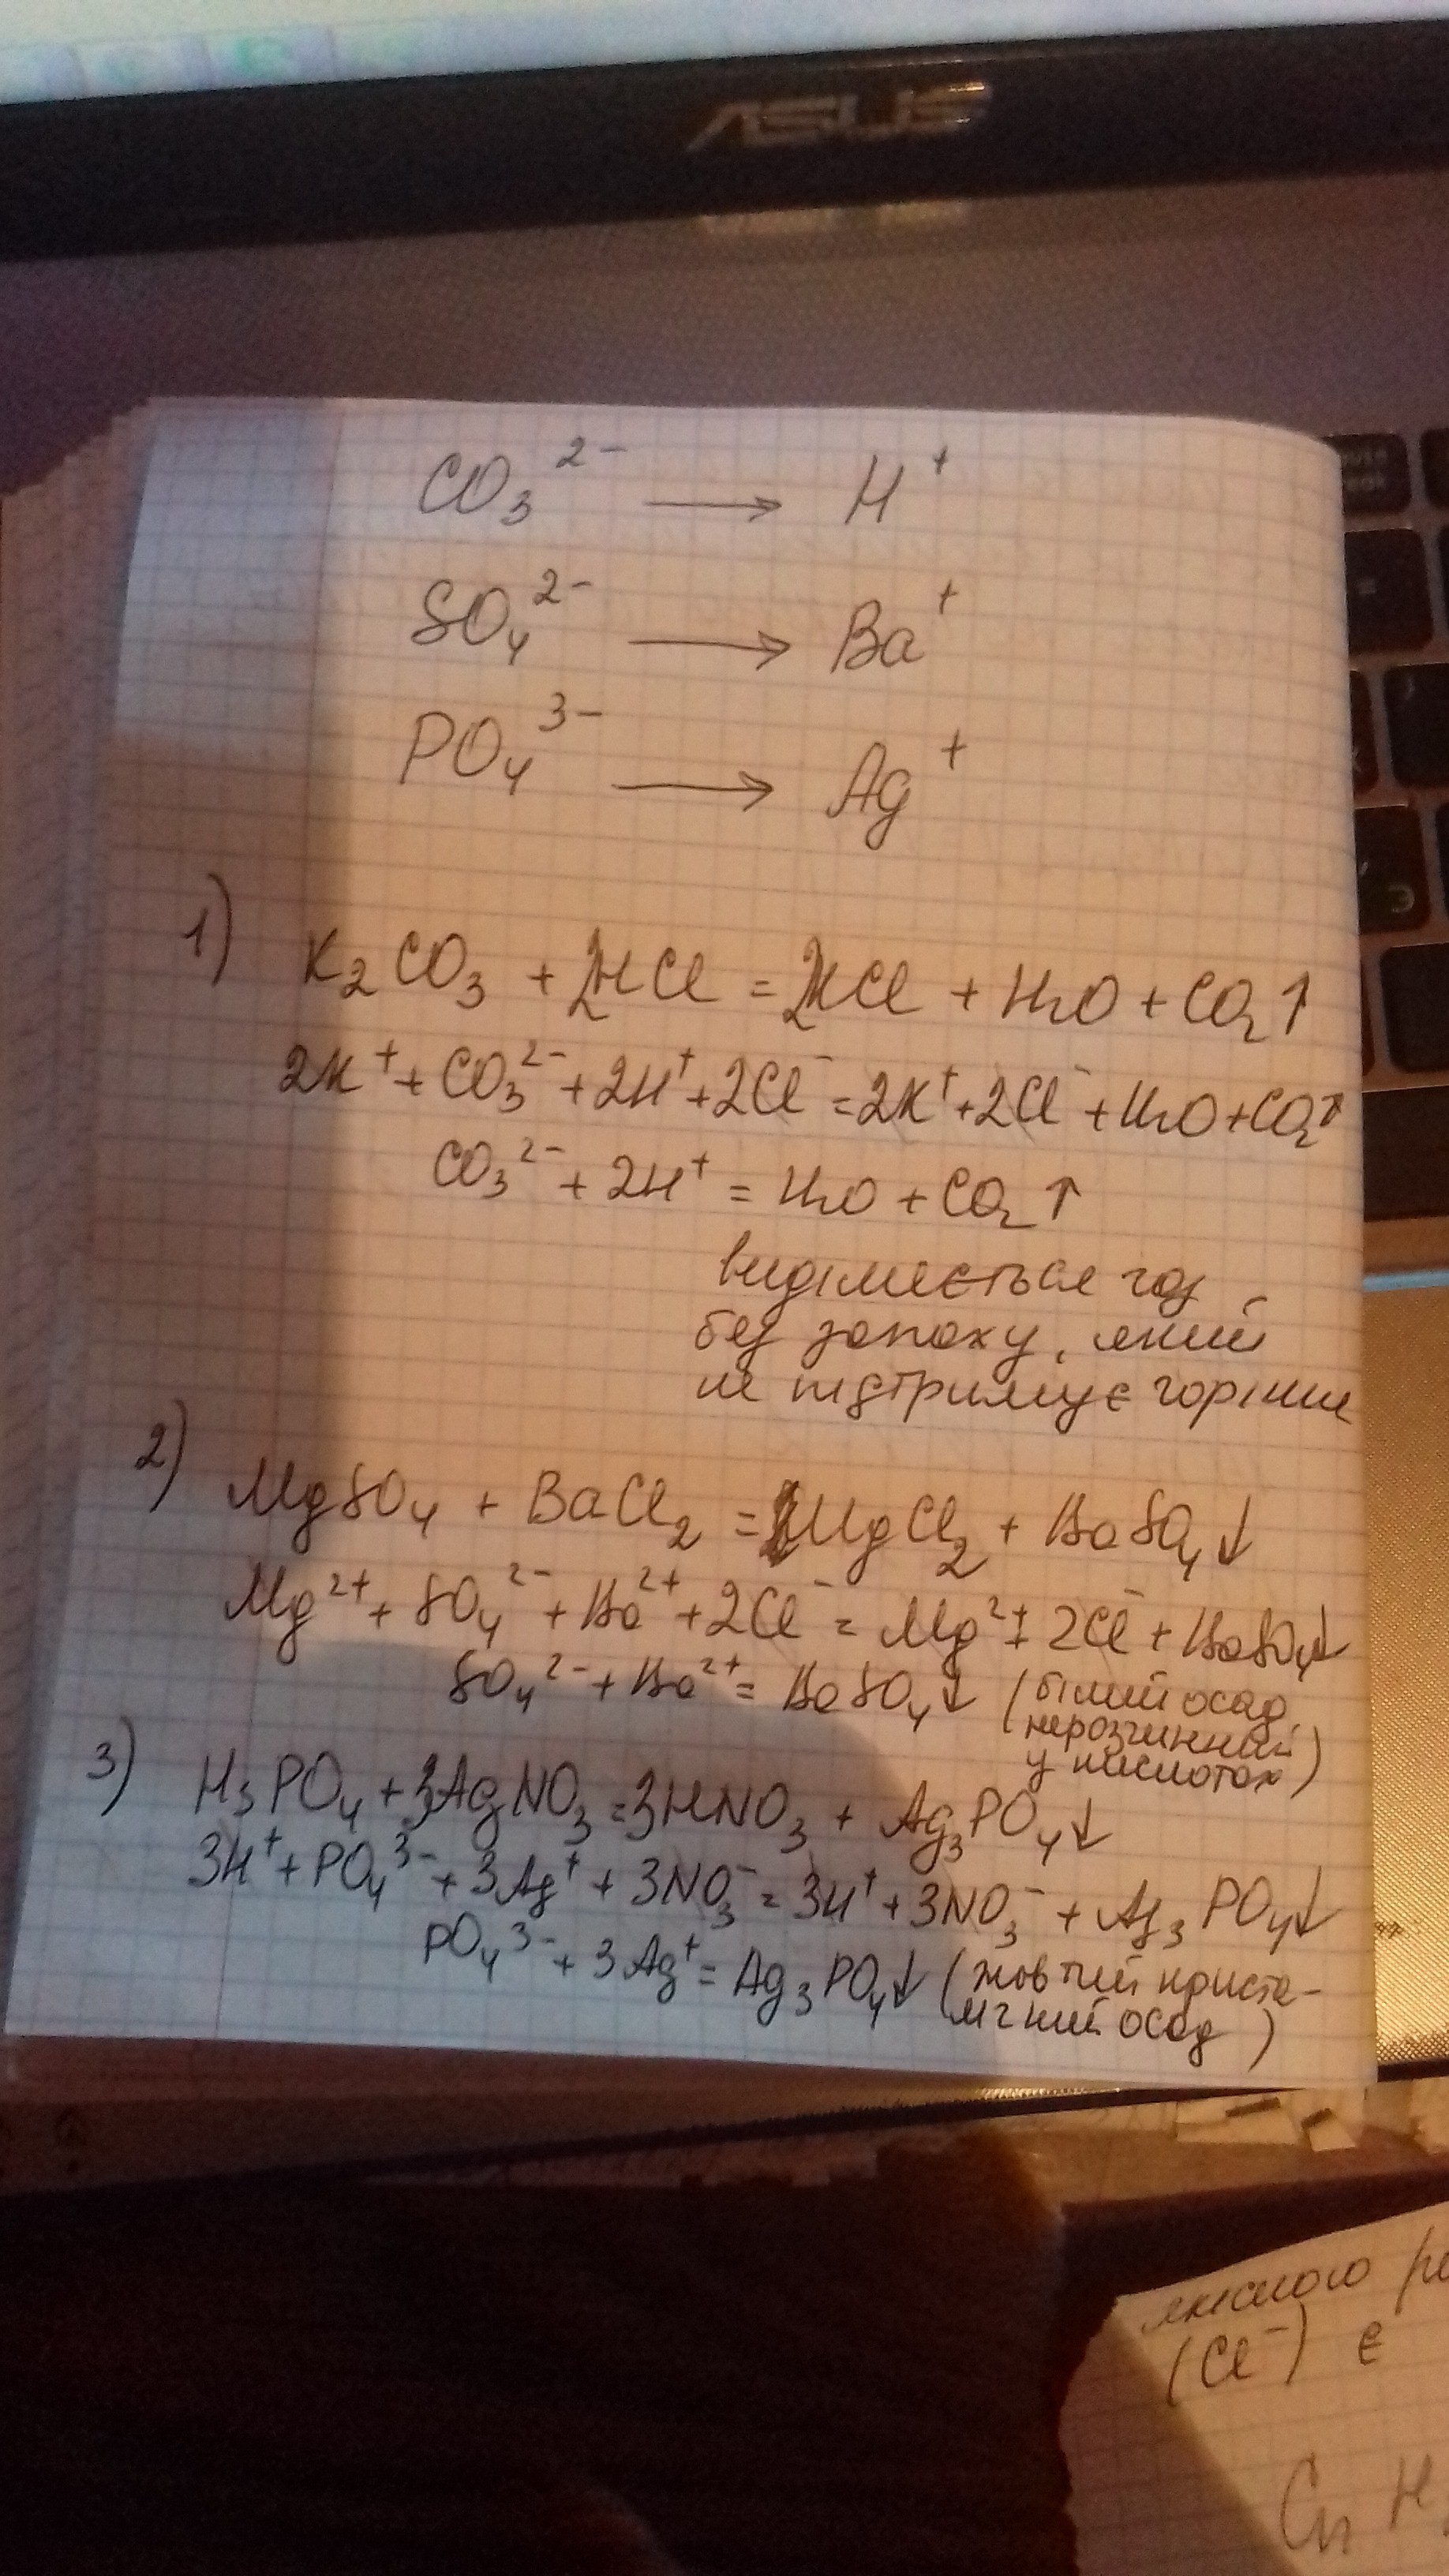 ASUS
CO₃²⁻ → H⁺
SO₄²⁻ → Ba⁺
PO₄³⁻ → Ag⁺
1) K₂CO₃ + 2HCl = 2KCl + H₂O + CO₂↑
2K⁺ + CO₃²⁻ + 2H⁺ + 2Cl⁻ = 2K⁺ + 2Cl⁻ + H₂O + CO₂↑
CO₃²⁻ + 2H⁺ = H₂O + CO₂↑
виділяється газ
без запаху, який
не підтримує горіння
2) MgSO₄ + BaCl₂ = MgCl₂ + BaSO₄↓
Mg²⁺ + SO₄²⁻ + Ba²⁺ + 2Cl⁻ = Mg²⁺ + 2Cl⁻ + BaSO₄↓
SO₄²⁻ + Ba²⁺ = BaSO₄↓ (білий осад,
нерозчинний
у кислотах)
3) H₃PO₄ + 3AgNO₃ = 3HNO₃ + Ag₃PO₄↓
3H⁺ + PO₄³⁻ + 3Ag⁺ + 3NO₃⁻ = 3H⁺ + 3NO₃⁻ + Ag₃PO₄↓
PO₄³⁻ + 3Ag⁺ = Ag₃PO₄↓ (жовтий криста-
лічний осад)
(Cl⁻) є